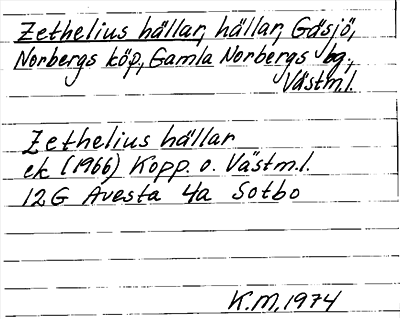 Zethelius hällar, hällar, Gäsjö,
Norbergs köp, Gamla Norbergs bg.,
Västm.l.
Zethelius hällar
ek (1966) Kopp. o. Västm.l.
12G Avesta 4a Sotbo
K.M. 1974